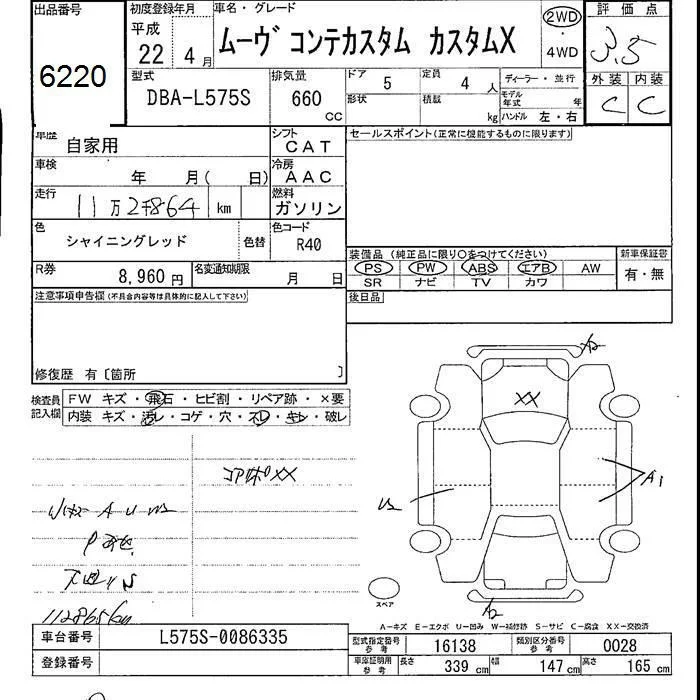 出品番号
6220
初度登録年月
平成
22年 4月
車名・グレード
ムーヴ コンテカスタム カスタムX
2WD
・
4WD
評価点
3.5
外装 内装
C C
型式
DBA-L575S
排気量
660
CC
ドア
5
形状
定員
4人
積載
kg
ディーラー・並行
モデル年式 年
ハンドル 左・右
車歴
自家用
シフト
CAT
車検
年 月( 日)
冷房
AAC
走行
11万2千864 km
燃料
ガソリン
色
シャイニングレッド
色替
色コード
R40
R券
8,960円
名変通知期限
月 日
セールスポイント(正常に機能するものに限ります)
装備品 (純正品に限り○をつけてください)
PS PW ABS エアB AW
SR ナビ TV カワ
新車保証書
有・無
後日品
注意事項申告欄(不具合内容等は具体的に記入して下さい)
修復歴 有〔箇所 〕
検査員記入欄
FW キズ・飛石・ヒビ割・リペア跡・×要
内装 キズ・汚レ・コゲ・穴・スレ・キレ・破レ
コアサポXX
112865km
X2
XX
A1
U2
A2
スペア
A-キズ E-エクボ U-凹み W-補修跡 S-サビ C-腐食 XX-交換済
車台番号
L575S-0086335
登録番号
型式指定番号
参考
16138
類別区分番号
参考
0028
車庫証明用
参考
長さ
339 cm
幅
147 cm
高さ
165 cm